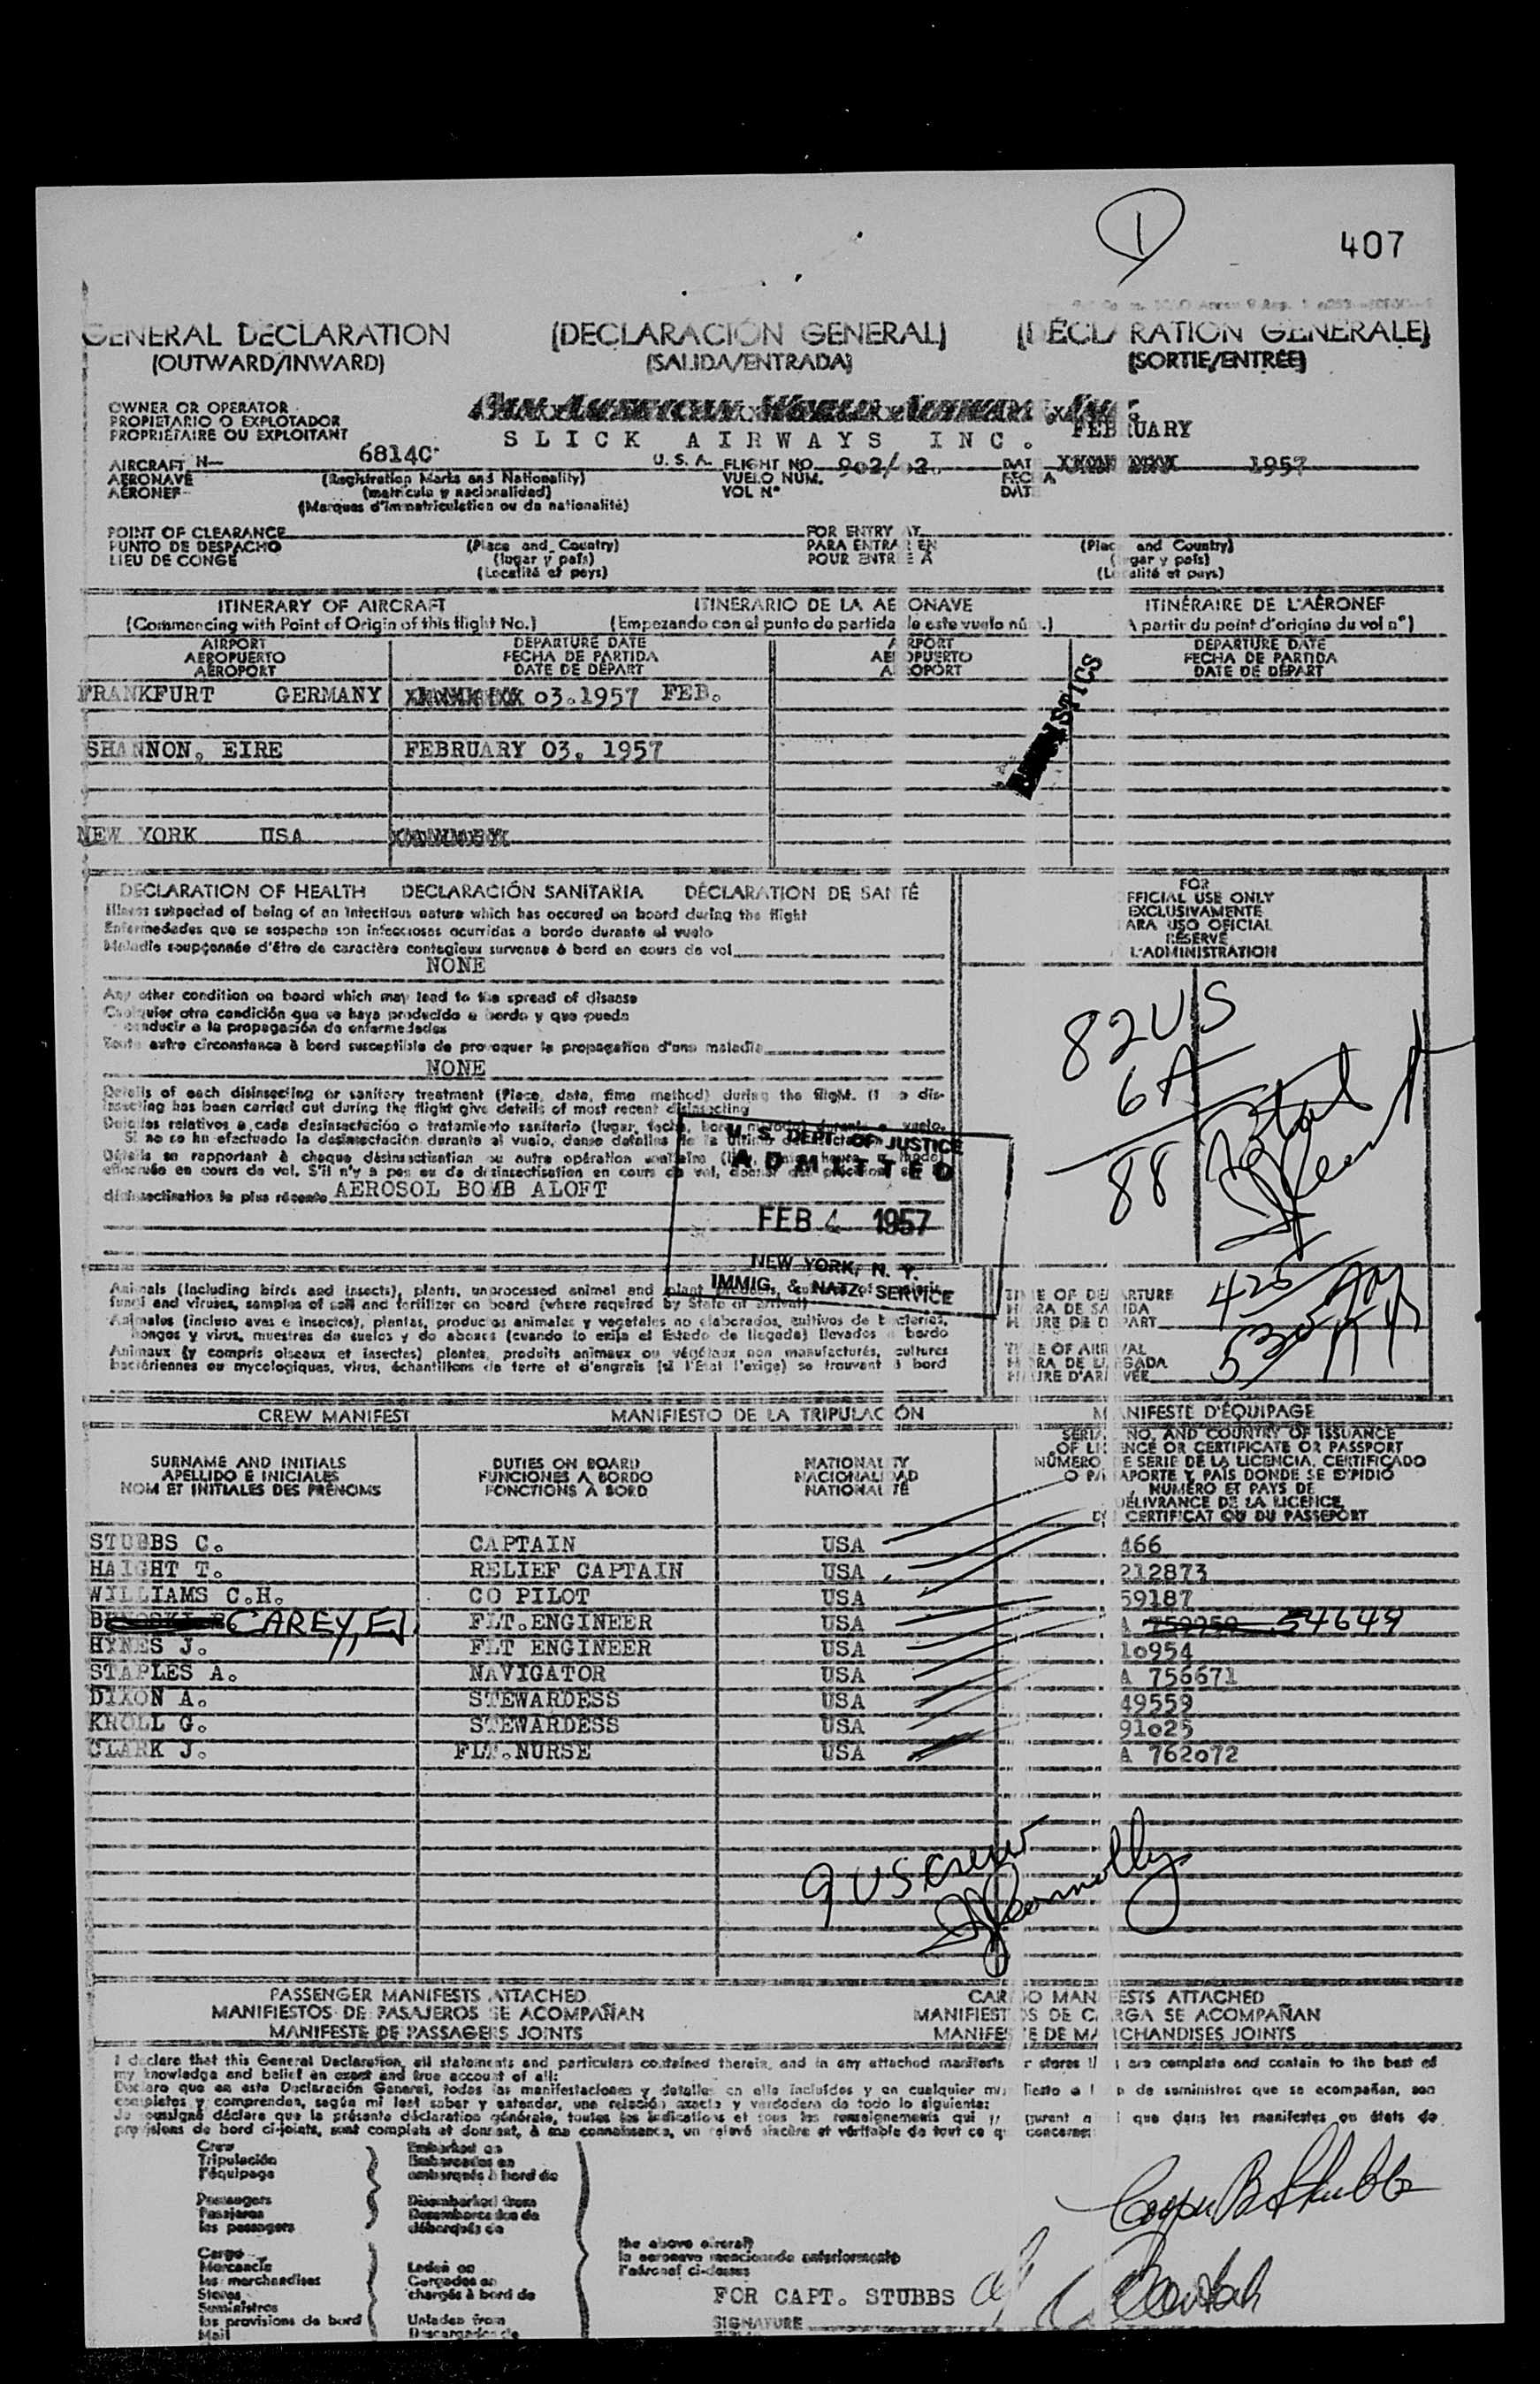 1
407
GENERAL DECLARATION (DECLARACIÓN GENERAL) (DÉCLARATION GÉNÉRALE)
(OUTWARD/INWARD) (SALIDA/ENTRADA) (SORTIE/ENTRÉE)
OWNER OR OPERATOR
PROPIETARIO O EXPLOTADOR
PROPRIÉTAIRE OU EXPLOITANT
SLICK AIRWAYS INC.
FEBRUARY
AIRCRAFT N- 6814C U.S.A. FLIGHT NO. 902/ 02 DATE 1957
AERONAVE (Registration Marks and Nationality) VUELO NÚM. FECHA
AÉRONEF (matrícula y nacionalidad) VOL Nº DATE
(Marques d'immatriculation ou de nationalité)
POINT OF CLEARANCE FOR ENTRY AT
PUNTO DE DESPACHO (Place and Country) PARA ENTRAR EN (Place and Country)
LIEU DE CONGÉ (lugar y país) POUR ENTRÉE À (lugar y país)
(Localité et pays) (Localité et pays)
ITINERARY OF AIRCRAFT ITINERARIO DE LA AERONAVE ITINÉRAIRE DE L'AÉRONEF
(Commencing with Point of Origin of this flight No.) (Empezando con el punto de partida de este vuelo núm.) (A partir du point d'origine du vol nº)
AIRPORT DEPARTURE DATE AIRPORT DEPARTURE DATE
AEROPUERTO FECHA DE PARTIDA AEROPUERTO FECHA DE PARTIDA
AÉROPORT DATE DE DÉPART AÉROPORT DATE DE DÉPART
FRANKFURT GERMANY 03.1957 FEB.
SHANNON, EIRE FEBRUARY 03. 1957
NEW YORK USA
DECLARATION OF HEALTH DECLARACIÓN SANITARIA DÉCLARATION DE SANTÉ
Illness suspected of being of an infectious nature which has occured on board during the flight
Enfermedades que se sospecha son infecciosas ocurridas a bordo durante el vuelo
Maladie soupçonnée d'être de caractère contagieux survenue à bord en cours de vol
NONE
Any other condition on board which may lead to the spread of disease
Cualquier otra condición que se haya producido a bordo y que pueda
conducir a la propagación de enfermedades
Toute autre circonstance à bord susceptible de provoquer la propagation d'une maladie
NONE
Details of each disinsecting or sanitary treatment (Place, date, time method) during the flight. If no dis-
insecting has been carried out during the flight give details of most recent disinsecting
Detalles relativos a cada desinsectación o tratamiento sanitario (lugar, fecha, hora, método) durante el vuelo.
Si no se ha efectuado la desinsectación durante el vuelo, dense detalles de la última
désinsectisation la plus récente AEROSOL BOMB ALOFT
FOR
OFFICIAL USE ONLY
EXCLUSIVAMENTE
PARA USO OFICIAL
RÉSERVÉ
L'ADMINISTRATION
82 US
6 A
88 Total
U.S. DEPT. OF JUSTICE
ADMITTED
FEB 4 1957
NEW YORK, N. Y.
IMMIG. & NATZ. SERVICE
Animals (including birds and insects), plants, unprocessed animal and plant products,
fungi and viruses, samples of soil and fertilizer on board (where required by State of arrival)
Animales (incluso aves e insectos), plantas, productos animales y vegetales no elaborados, cultivos de bacterias,
hongos y virus, muestras de suelos y de abonos (cuando lo exija el Estado de llegada) llevados a bordo
Animaux (y compris oiseaux et insectes) plantes, produits animaux ou végétaux non manufacturés, cultures
bactériennes ou mycologiques, virus, échantillons de terre et d'engrais (si l'État l'exige) se trouvant à bord
TIME OF DEPARTURE
HORA DE SALIDA
HEURE DE DÉPART 425
TIME OF ARRIVAL
HORA DE LLEGADA
HEURE D'ARRIVÉE 530
CREW MANIFEST MANIFIESTO DE LA TRIPULACIÓN MANIFESTE D'ÉQUIPAGE
SURNAME AND INITIALS DUTIES ON BOARD NATIONALITY
APELLIDO E INICIALES FUNCIONES A BORDO NACIONALIDAD
NOM ET INITIALES DES PRÉNOMS FONCTIONS À BORD NATIONALITÉ
SERIAL NO. AND COUNTRY OF ISSUANCE
OF LICENCE OR CERTIFICATE OR PASSPORT
NÚMERO DE SERIE DE LA LICENCIA, CERTIFICADO
O PASAPORTE Y PAÍS DONDE SE EXPIDIÓ
NUMÉRO ET PAYS DE
DÉLIVRANCE DE LA LICENCE,
DU CERTIFICAT OU DU PASSEPORT
STUBBS C. CAPTAIN USA 466
HAIGHT T. RELIEF CAPTAIN USA 212873
WILLIAMS C.H. CO PILOT USA 59187
CAREY, EJ FLT.ENGINEER USA A 54649
HYNES J. FLT ENGINEER USA 10954
STAPLES A. NAVIGATOR USA A 756671
DIXON A. STEWARDESS USA 49559
KROLL G. STEWARDESS USA 91025
CLARK J. FLT.NURSE USA A 762072
9 US Crew
PASSENGER MANIFESTS ATTACHED CARGO MANIFESTS ATTACHED
MANIFIESTOS DE PASAJEROS SE ACOMPAÑAN MANIFIESTOS DE CARGA SE ACOMPAÑAN
MANIFESTE DE PASSAGERS JOINTS MANIFESTE DE MARCHANDISES JOINTS
I declare that this General Declaration, all statements and particulars contained therein, and in any attached manifests or stores list are complete and contain to the best of
my knowledge and belief an exact and true account of all:
Declaro que en esta Declaración General, todas las manifestaciones y detalles en ella incluídos y en cualquier manifiesto o de suministros que se acompañan, son
completos y comprenden, según mi leal saber y entender, una relación exacta y verdadera de todo lo siguiente:
Je soussigné déclare que la présente déclaration générale, toutes les indications et tous les renseignements qui y figurent que dans les manifestes ou états de
provisions de bord ci-joints, sont complets et donnent, à ma connaissance, un relevé sincère et véritable de tout ce qui concerne:
Crew Embarked on
Tripulación Embarcados en
l'équipage embarqués à bord de
Passengers Disembarked from
Pasajeros Desembarcados de
les passagers débarqués de
Cargo
Mercancía Laden on
les marchandises Cargados en
Stores chargés à bord de
Suministros
les provisions de bord Unladen from
Mail Descargados de
the above aircraft
la aeronave mencionada anteriormente
l'aéronef ci-dessus
FOR CAPT. STUBBS
SIGNATURE